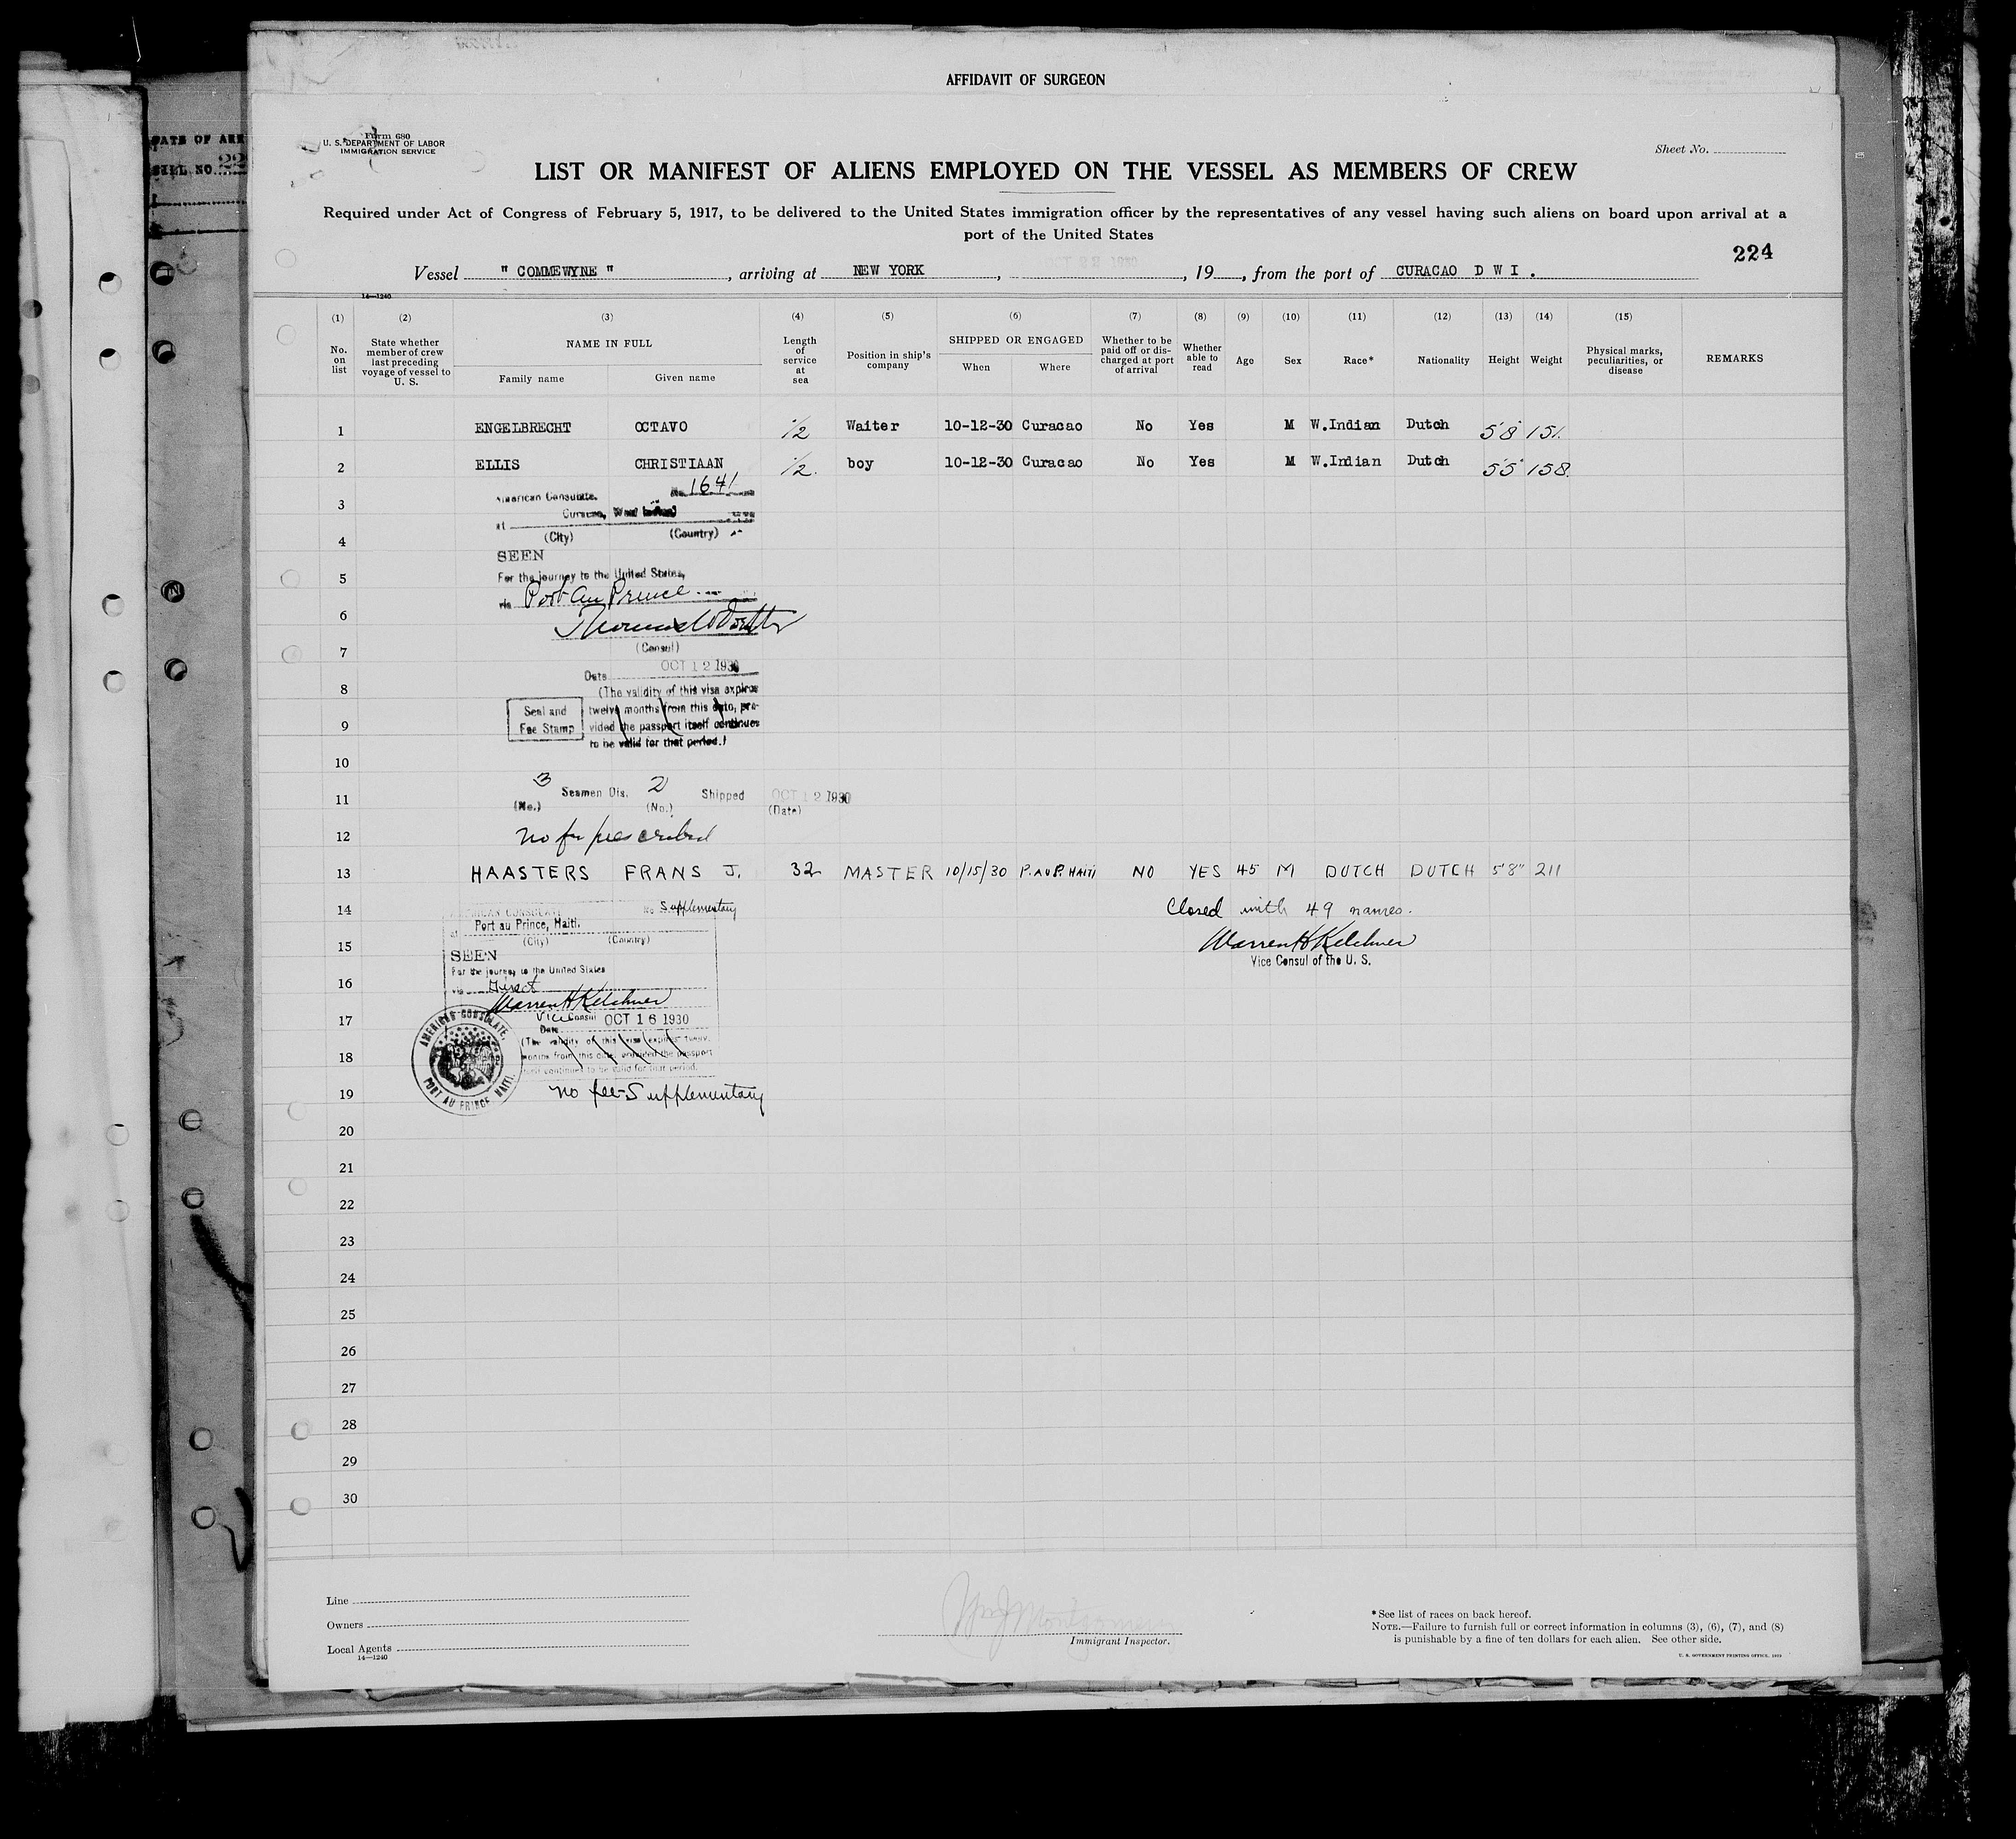 AFFIDAVIT OF SURGEON
DATE OF ARR
Form 680
U. S. DEPARTMENT OF LABOR
IMMIGRATION SERVICE
Sheet No.
LIST OR MANIFEST OF ALIENS EMPLOYED ON THE VESSEL AS MEMBERS OF CREW
Required under Act of Congress of February 5, 1917, to be delivered to the United States immigration officer by the representatives of any vessel having such aliens on board upon arrival at a
port of the United States
224
Vessel " COMMEWYNE ", arriving at NEW YORK, OCT 22 1930, 19, from the port of CURACAO D W I .
14—1240
(1) (2) (3) (4) (5) (6) (7) (8) (9) (10) (11) (12) (13) (14) (15)
No. on list
State whether member of crew last preceding voyage of vessel to U. S.
NAME IN FULL
Family name Given name
Length of service at sea
Position in ship's company
SHIPPED OR ENGAGED
When Where
Whether to be paid off or discharged at port of arrival
Whether able to read
Age
Sex
Race*
Nationality
Height
Weight
Physical marks, peculiarities, or disease
REMARKS
1 ENGELBRECHT OCTAVO 1/2 Waiter 10-12-30 Curacao No Yes M W.Indian Dutch 5'8" 151.
2 ELLIS CHRISTIAAN 1/2. boy 10-12-30 Curacao No Yes M W.Indian Dutch 5'5" 158.
3
American Consulate. No. 1641
Curacao, West Indies
at
4
(City) (Country)
SEEN
5
For the journey to the United States,
via Port Au Prince
6
7
(Consul)
OCT 12 1930
Date
8
(The validity of this visa expires
twelve months from this date, pro-
vided the passport itself continues
to be valid for that period.)
Seal and
Fee Stamp
9
10
3 Seamen Dis. 2 Shipped OCT 12 1930
11
(No.) (No.) (Date)
12 no fee prescribed
13 HAASTERS FRANS J. 32 MASTER 10/15/30 P. AU P. HAITI NO YES 45 M DUTCH DUTCH 5'8" 211
14 Closed with 49 names.
AMERICAN CONSULATE No Supplementary
at Port au Prince, Haiti.
(City) (Country)
15 Warren H Kelchner
Vice Consul of the U. S.
SEEN
For the journey to the United States
16
via Direct
Warren H Kelchner
17
Vice Consul OCT 16 1930
Date
(The validity of this visa expires twelve
months from this date, provided the passport
itself continues to be valid for that period.
18
AMERICAN CONSULATE,
PORT AU PRINCE HAITI.
19 no fee-Supplementary
20
21
22
23
24
25
26
27
28
29
30
Line
Owners
Local Agents
14—1240
Wm J Montgomery
Immigrant Inspector.
*See list of races on back hereof.
NOTE.—Failure to furnish full or correct information in columns (3), (6), (7), and (8)
is punishable by a fine of ten dollars for each alien. See other side.
U. S. GOVERNMENT PRINTING OFFICE. 1929